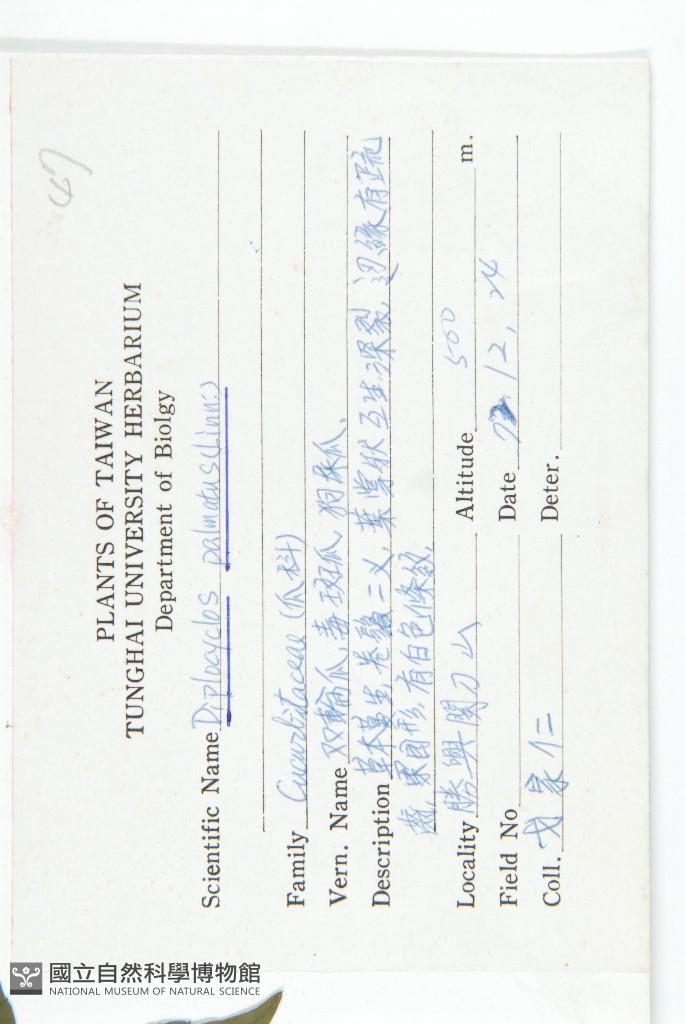 47
PLANTS OF TAIWAN
TUNGHAI UNIVERSITY HERBARIUM
Department of Biolgy
Scientific Name Diplocyclos palmatus (Linn.)
Family Cucurbitaceae (瓜科)
Vern. Name 双輪瓜, 毒班瓜, 狗屎瓜、
Description 草本蔓生, 卷鬚二义, 葉掌状互生深裂, 边緣有疏
齒, 果圆形, 有白色條紋.
Locality 勝興関刀山 Altitude 500 m.
Field No Date 72, 12, 24
Coll. 家仁 Deter.
國立自然科學博物館
NATIONAL MUSEUM OF NATURAL SCIENCE